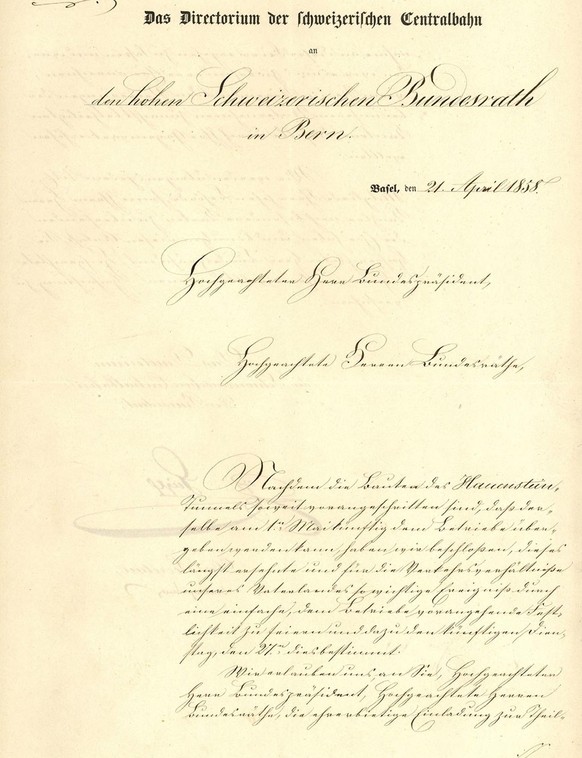 Das Directorium der schweizerischen Centralbahn
an
den hohen Schweizerischen Bundesrath
in Bern.
Basel, den 21. April 1858.
Hochgeachteter Herr Bundespräsident,
Hochgeachtete Herren Bundesräthe,
Nachdem die Bauten des Hauenstein-
Tunnels soweit vorangeschritten sind, daß der-
selbe am 1ten Mai künftig dem Betriebe über-
geben werden kann, haben wir beschloßen, dieses
längst ersehnte und für die Verkehrsverhältniße
unseres Vaterlandes so wichtige Ereigniß durch
eine einfache, dem Betriebe vorangehende Fest-
lichkeit zu feiern und dazu den künftigen Diens-
tag, den 27ten dies bestimmt.
Wir erlauben uns an Sie, Hochgeachteter
Herr Bundespräsident, Hochgeachtete Herren
Bundesräthe, die ehrerbietige Einladung zur Theil-